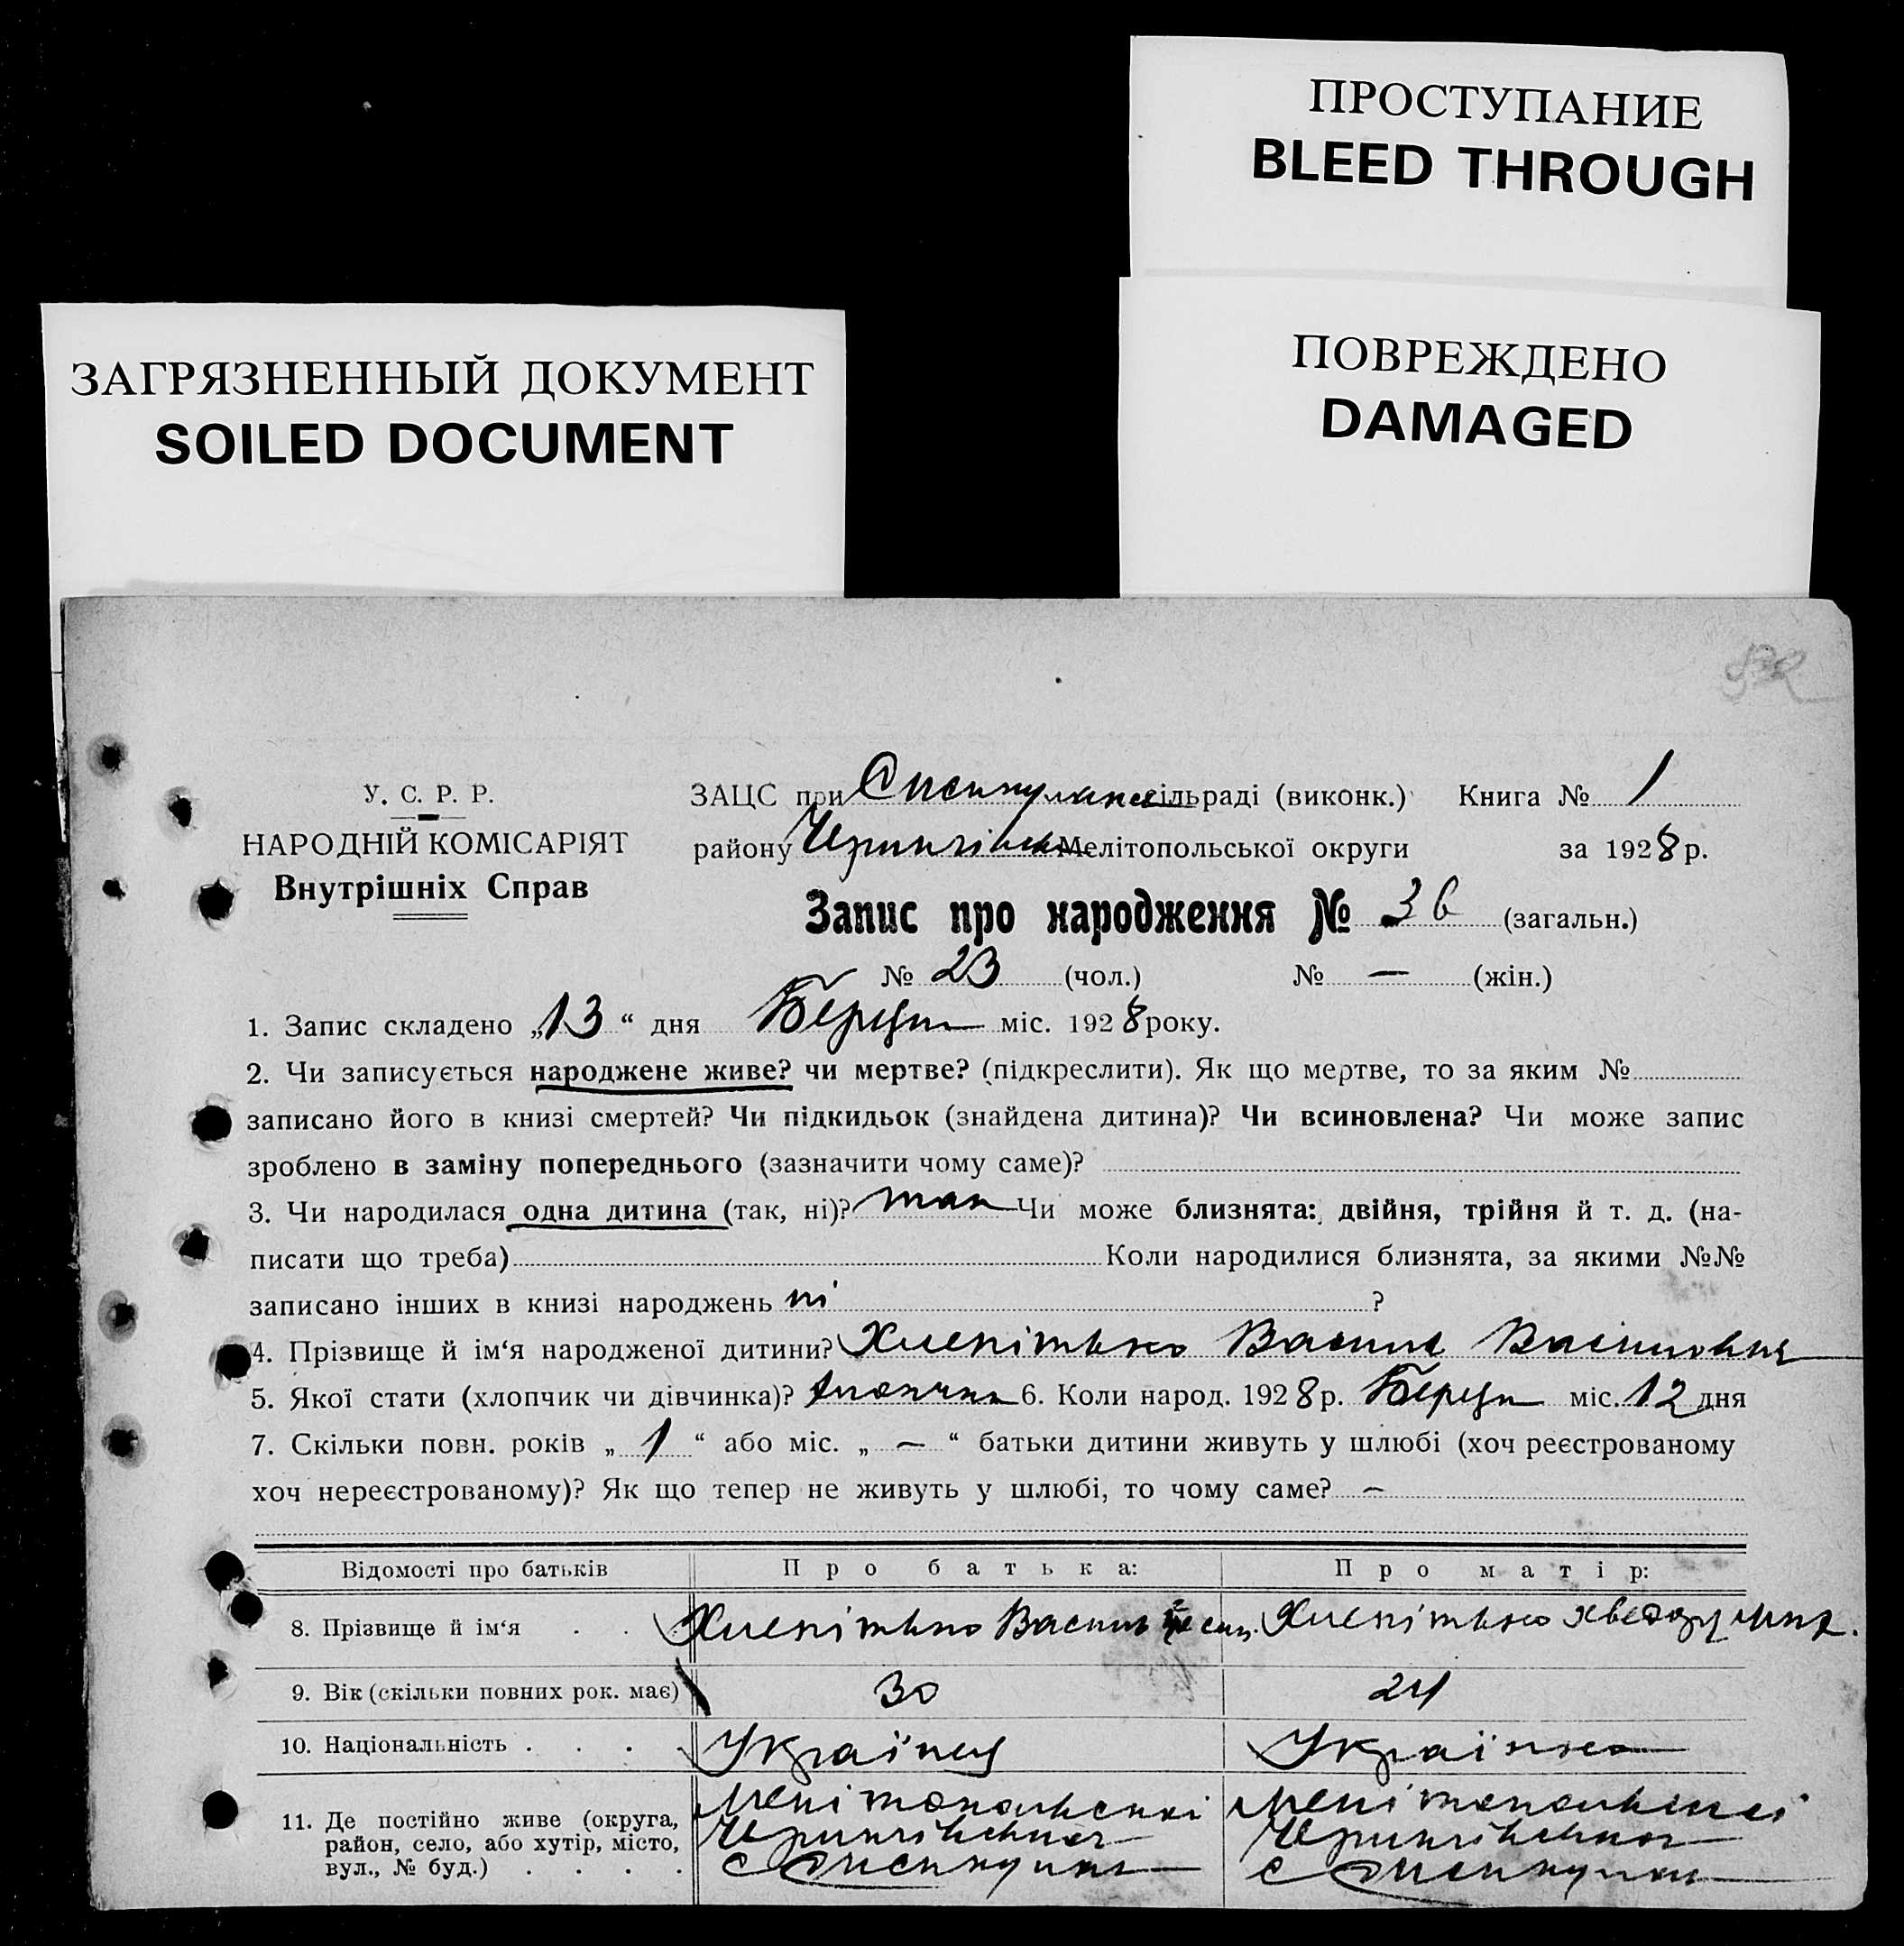 ПРОСТУПАНИЕ
BLEED THROUGH
ЗАГРЯЗНЕННЫЙ ДОКУМЕНТ
SOILED DOCUMENT
ПОВРЕЖДЕНО
DAMAGED
У. С. Р. Р.
НАРОДНІЙ КОМІСАРІЯТ
Внутрішніх Справ
ЗАЦС при сільраді (виконк.) Книга № 1
району Мелітопольської округи за 1928 р.
Запис про народження № 36 (загальн.)
№ 23 (чол.) № — (жін.)
1. Запис складено „13“ дня Березня міс. 1928 року.
2. Чи записується народжене живе? чи мертве? (підкреслити). Як що мертве, то за яким №
записано його в книзі смертей? Чи підкидьок (знайдена дитина)? Чи всиновлена? Чи може запис
зроблено в заміну попереднього (зазначити чому саме)?
3. Чи народилася одна дитина (так, ні)? так Чи може близнята: двійня, трійня й т. д. (на-
писати що треба) Коли народилися близнята, за якими №№
записано інших в книзі народжень ні ?
4. Прізвище й ім‘я народженої дитини? Василь
5. Якої стати (хлопчик чи дівчинка)? 6. Коли народ. 1928 р. Березня міс. 12 дня
7. Скільки повн. років „ 1 “ або міс. „ — “ батьки дитини живуть у шлюбі (хоч реєстрованому
хоч нереєстрованому)? Як що тепер не живуть у шлюбі, то чому саме? —
Відомості про батьків Про батька: Про матір:
8. Прізвище й ім‘я . . . Василь
9. Вік (скільки повних рок. має) 30 24
10. Національність . . . . Українец Українка
11. Де постійно живе (округа,
район, село, або хутір, місто,
вул., № буд.) . . . .